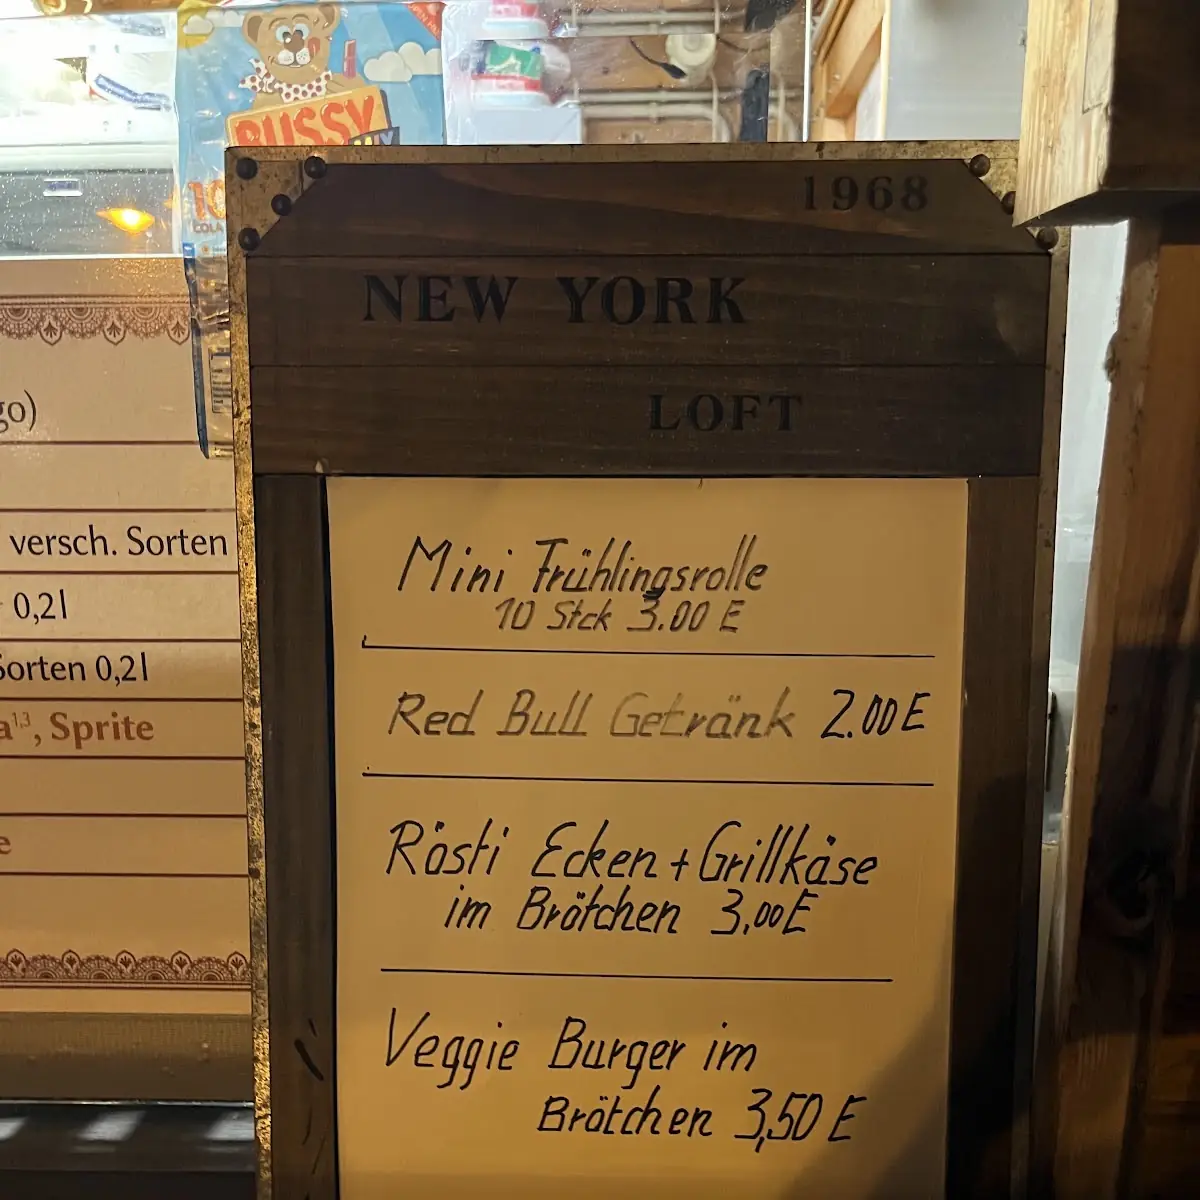 BUSSY
10
COLA
1968
NEW YORK
LOFT
go)
versch. Sorten
0,2l
Sorten 0,2l
a1,3, Sprite
e
Mini Frühlingsrolle
10 Stck 3.00 E
Red Bull Getränk 2.00 E
Rösti Ecken + Grillkäse
im Brötchen 3,00 E
Veggie Burger im
Brötchen 3,50 E